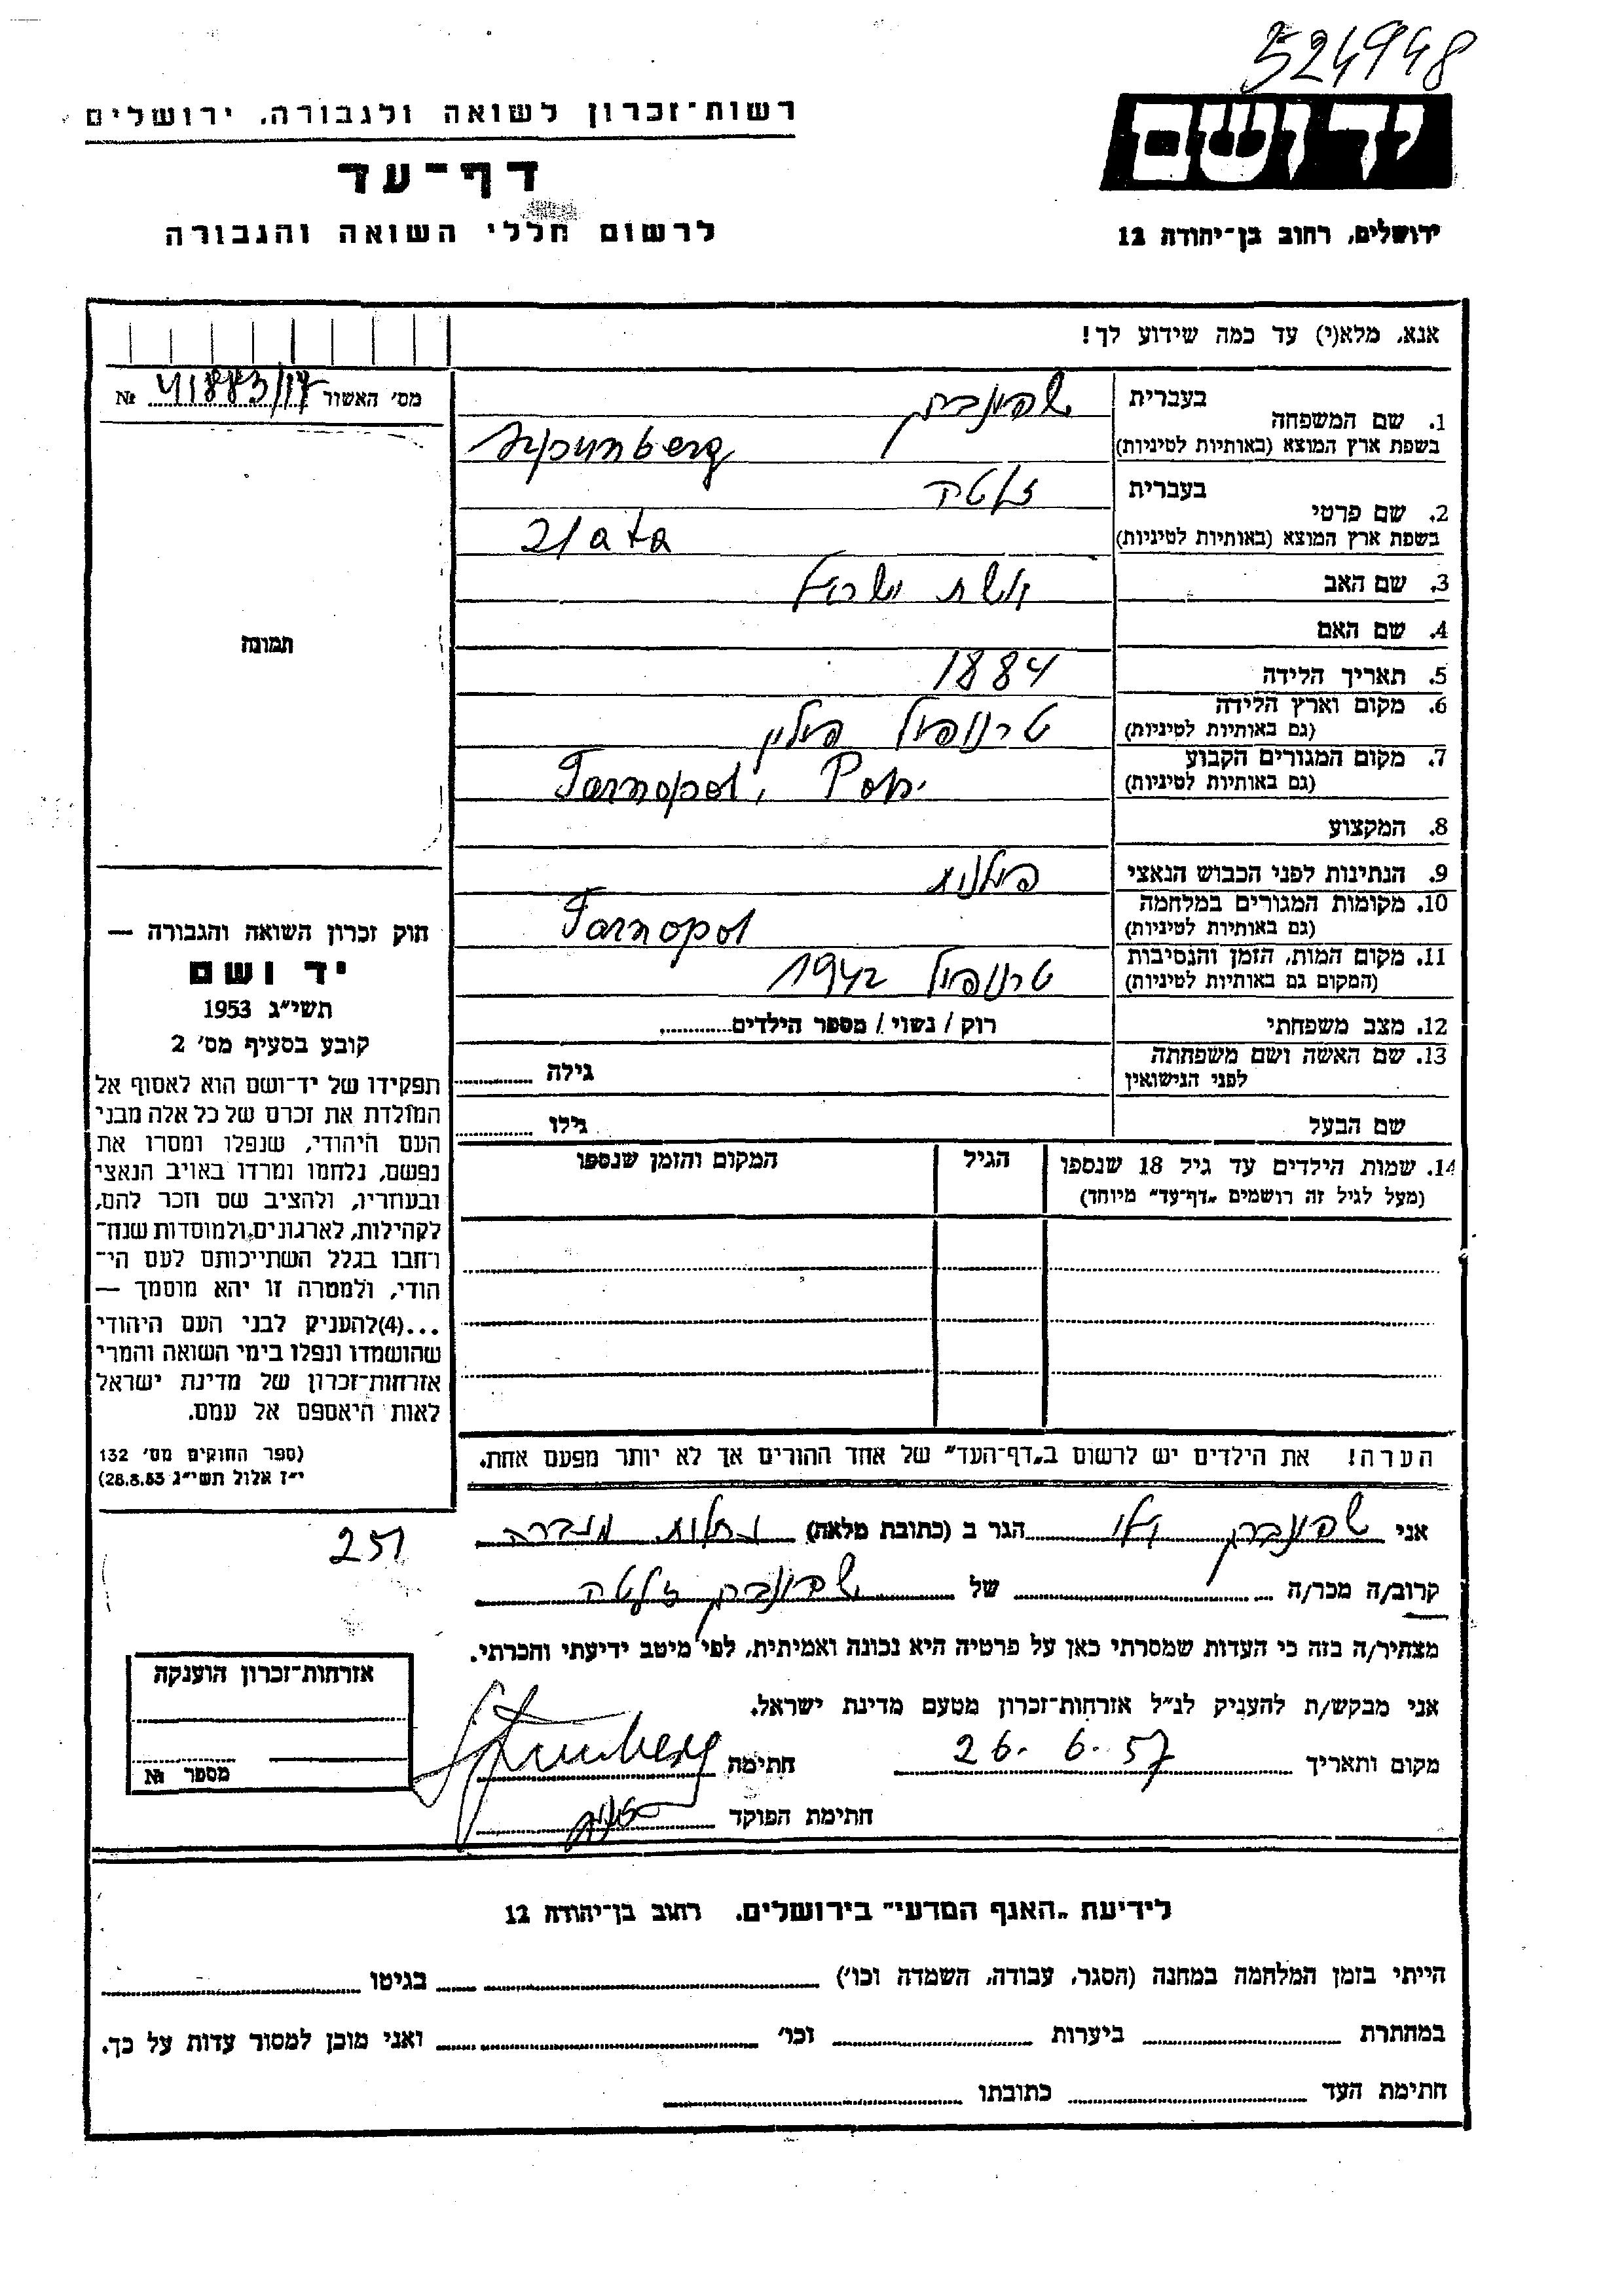 524948
רשות־זכרון לשואה ולגבורה, ירושלים
יד ושם
דף־עד
לרשום חללי השואה והגבורה
ירושלים, רחוב בן־יהודה 12
אנא, מלא(י) עד כמה שידוע לך!
מס׳ האשור 41883/17 №
1. שם המשפחה בעברית שפונברג
בשפת ארץ המוצא (באותיות לטיניות) Szpunberg
2. שם פרטי בעברית זלטה
בשפת ארץ המוצא (באותיות לטיניות) Zlata
3. שם האב
4. שם האם
5. תאריך הלידה 1884
6. מקום וארץ הלידה (גם באותיות לטיניות) טרנופול פולין
7. מקום המגורים הקבוע (גם באותיות לטיניות) Tarnopol, Pol.
8. המקצוע
9. הנתינות לפני הכבוש הנאצי פולנית
10. מקומות המגורים במלחמה (גם באותיות לטיניות) Tarnopol
11. מקום המות, הזמן והנסיבות (המקום גם באותיות לטיניות) טרנופול 1942
12. מצב משפחתי רוק / נשוי / מספר הילדים
13. שם האשה ושם משפחתה לפני הנישואין גילה
שם הבעל גילו
14. שמות הילדים עד גיל 18 שנספו הגיל המקום והזמן שנספו
(מעל לגיל זה רושמים „דף־עד״ מיוחד)
הערה! את הילדים יש לרשום ב„דף־העד״ של אחד ההורים אך לא יותר מפעם אחת.
תמונה
חוק זכרון השואה והגבורה —
יד ושם
תשי״ג 1953
קובע בסעיף מס׳ 2
תפקידו של יד־ושם הוא לאסוף אל
המולדת את זכרם של כל אלה מבני
העם היהודי, שנפלו ומסרו את
נפשם, נלחמו ומרדו באויב הנאצי
ובעוזריו, ולהציב שם וזכר להם,
לקהילות, לארגונים ולמוסדות שנח־
רחבו בגלל השתייכותם לעם הי־
הודי, ולמטרה זו יהא מוסמך —
...(4)להעניק לבני העם היהודי
שהושמדו ונפלו בימי השואה והמרי
אזרחות־זכרון של מדינת ישראל
לאות היאספם אל עמם.
(ספר החוקים מס׳ 132
י״ז אלול תשי״ג 28.8.53)
251
אני שפונברג הגר ב (כתובת מלאה)
קרוב/ה מכר/ה של שפונברג זלטה
מצהיר/ה בזה כי העדות שמסרתי כאן על פרטיה היא נכונה ואמיתית, לפי מיטב ידיעתי והכרתי.
אני מבקש/ת להעניק לנ״ל אזרחות־זכרון מטעם מדינת ישראל.
מקום ותאריך 26.6.57 חתימה
חתימת הפוקד
אזרחות־זכרון הוענקה
מספר №
לידיעת „האגף המדעי״ בירושלים, רחוב בן־יהודה 12
הייתי בזמן המלחמה במחנה (הסגר, עבודה, השמדה וכו׳) בגיטו
במחתרת ביערות וכו׳ ואני מוכן למסור עדות על כך.
חתימת העד כתובתו